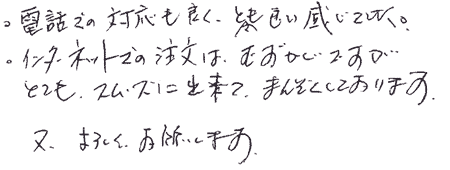 。電話での対応も良く、とても良い感じでした。
。インターネットでの注文は、むずかしいですが
とても、スムーズに出来て、まんぞくしております。
又、よろしく、お願いします。